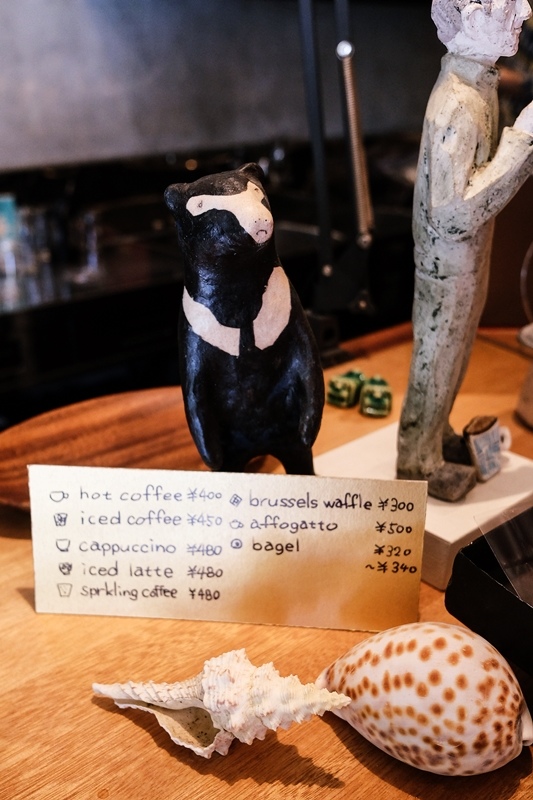 hot coffee ¥400
iced coffee ¥450
cappuccino ¥480
iced latte ¥480
sprkling coffee ¥480
brussels waffle ¥300
affogatto ¥500
bagel ¥320
~¥340